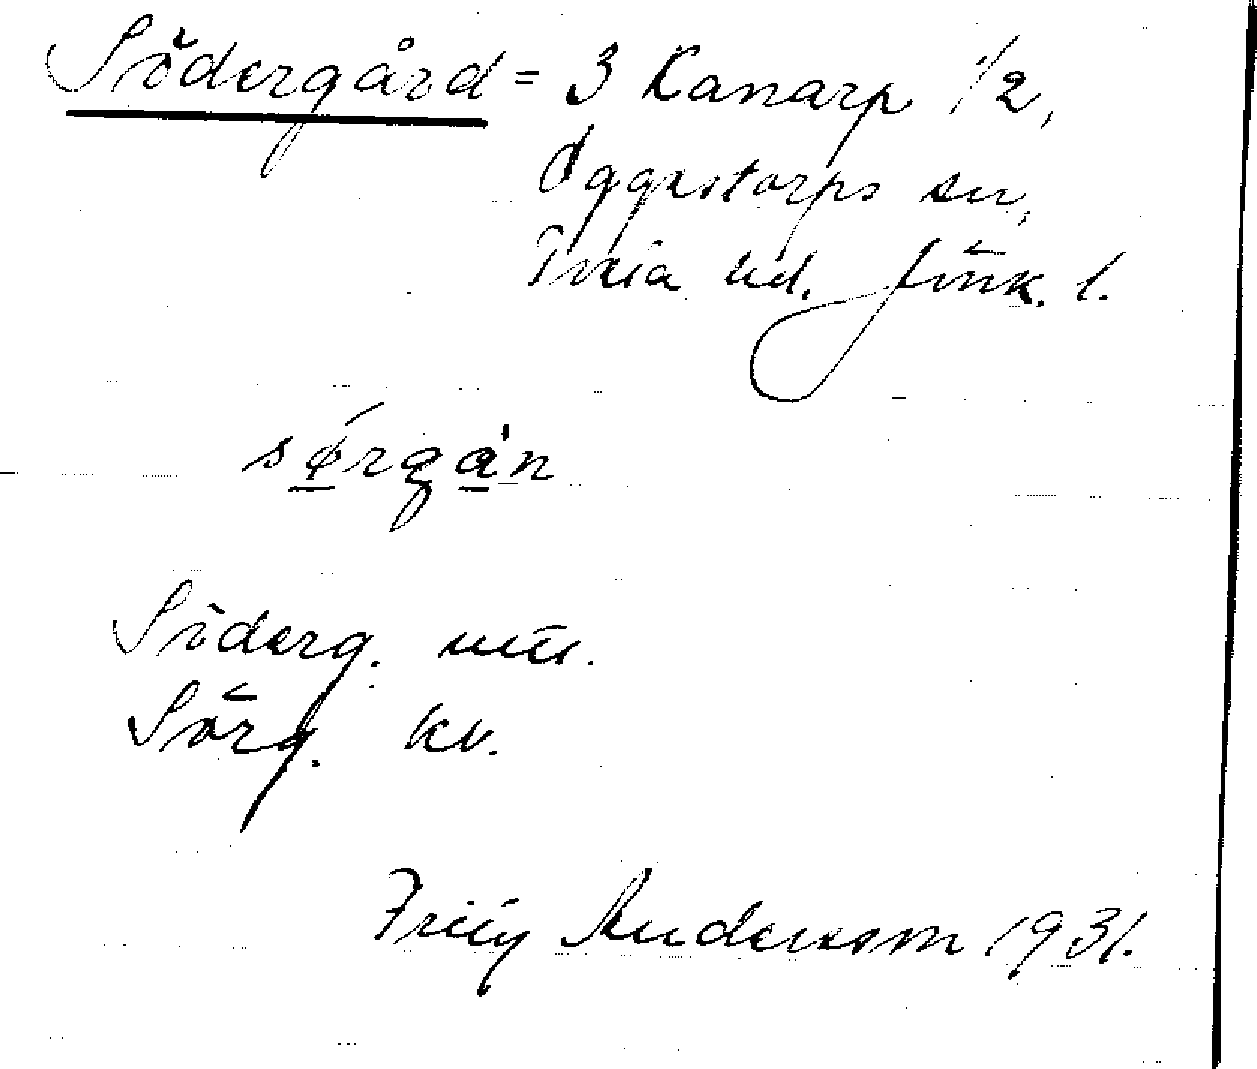 Södergård = 3 Kanarp 1/2,
Öggestorps sn,
Tveta hd. Jönk. l.
sørgán
Söderg. mtl.
Sörg. kv.
Andersson 1931.